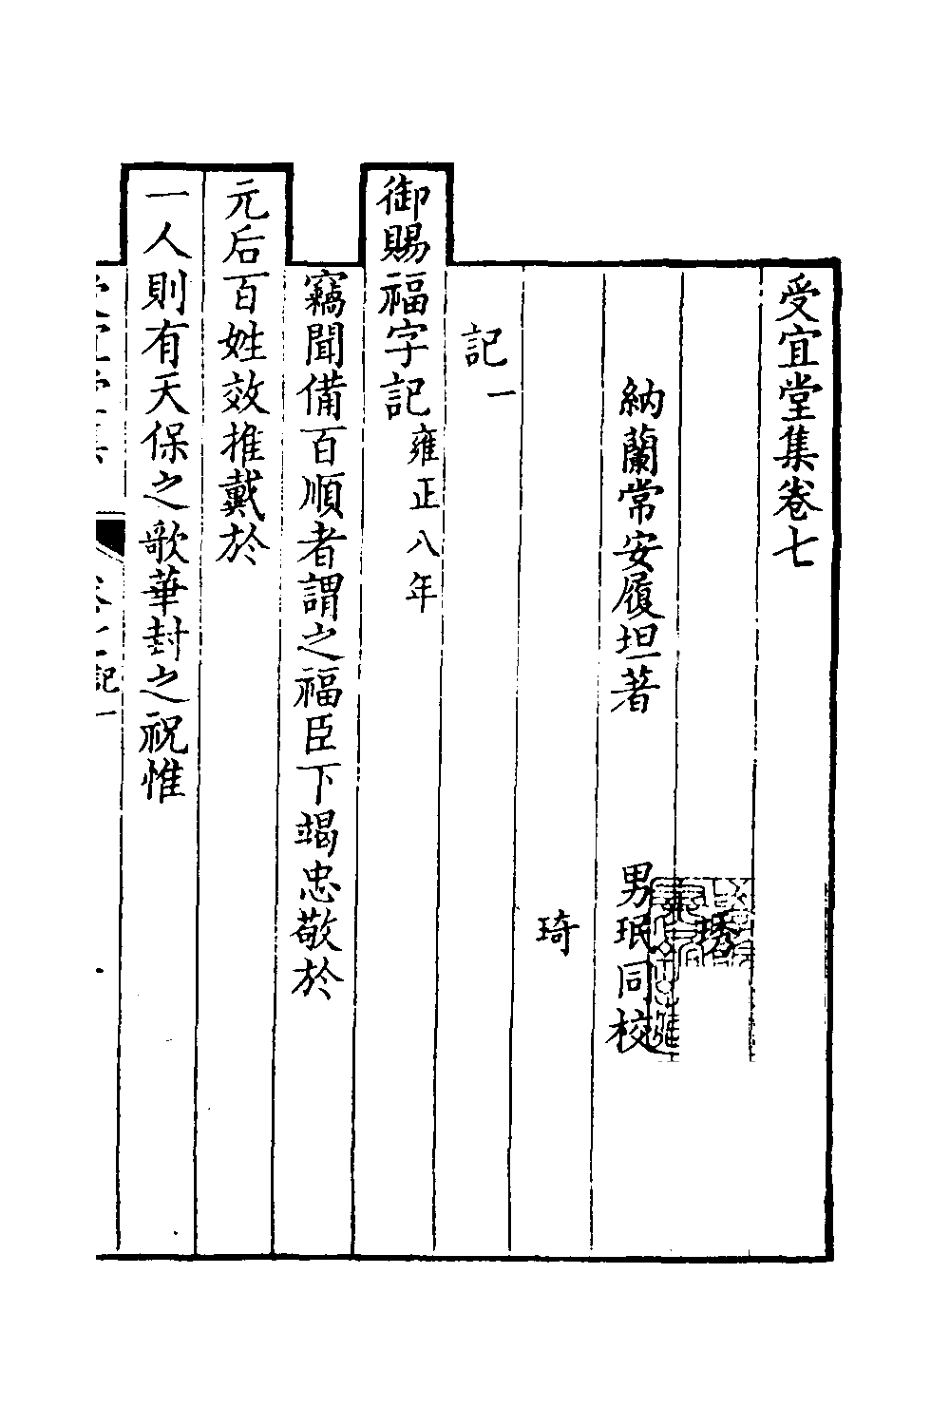 受宜堂集卷七
琇
納蘭常安履坦著 男珉同校
琦
記一
御賜福字記雍正八年
竊聞備百順者謂之福臣下竭忠敬於
元后百姓效推戴於
一人則有天保之歌華封之祝惟